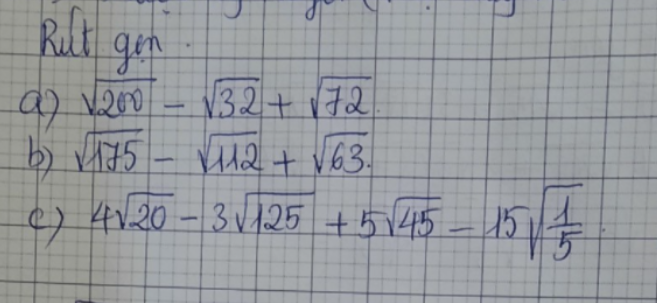 Rút gọn.
a) √200 − √32 + √72.
b) √175 − √112 + √63.
c) 4√20 − 3√125 + 5√45 − 15√(1/5).